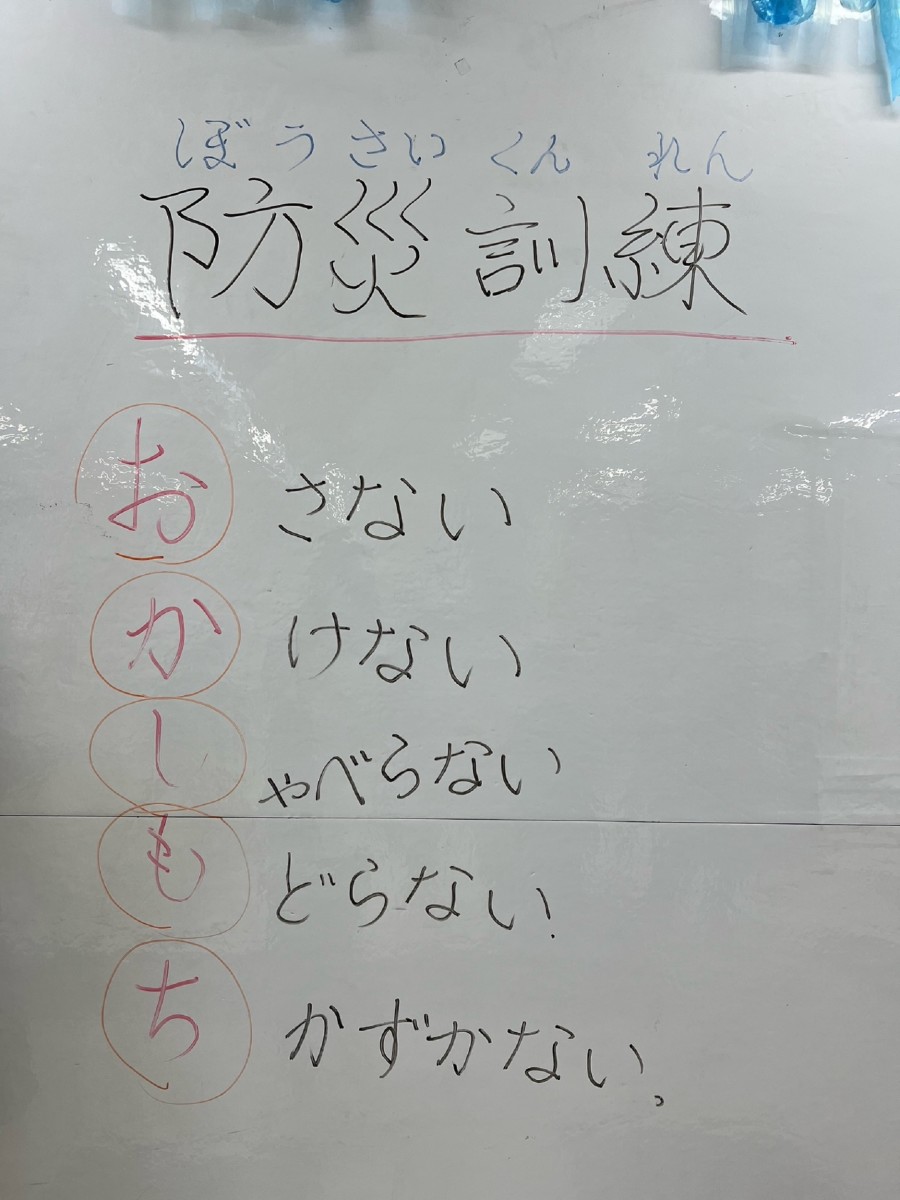 ぼうさいくんれん
防災訓練
おさない
かけない
しゃべらない
もどらない!
ちかずかない。